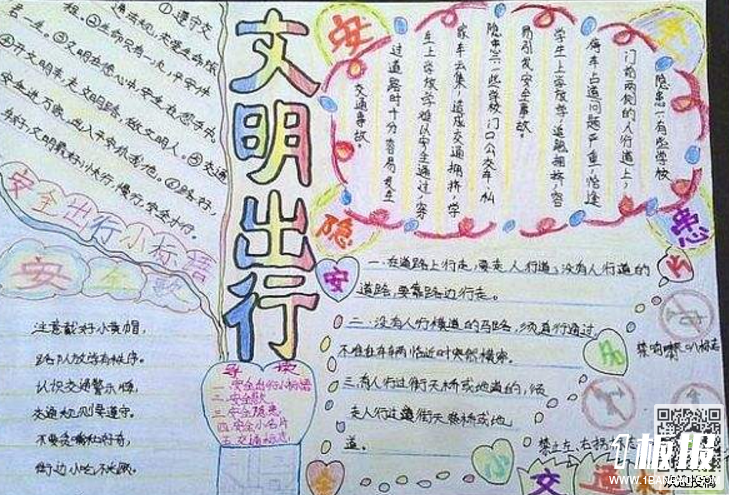 ①遵守交
通法规,关爱生命旅
程。②生命只有一次,平安伴
君一生。③文明在您心中,安全在您手中。
④开文明车,走文明路,做文明人。⑤交通
安全进万家,出入平安你我他。⑥路好,
车好,文明最好;小快行,慢行,安全才行。
安全出行小标语
安全歌
注意戴好小黄帽,
路队放得有秩序。
认识交通警示牌,
交通规则要遵守。
不要贪嘴和好奇,
街边小吃不光顾。
文明出行
导读
一.安全出行小标语
二.安全歌
三.安全隐患
四.安全小名片
五.交通标志
安全隐患
隐患一:有些学校
门前两侧的人行道上,
停车占道问题严重,恰逢
学生上学放学,道路拥挤,容
易引发安全事故。
隐患二:一些学校门口公交车,私
家车云集,造成交通拥挤,学
生上学放学难以安全通过,穿
过道路时十分容易发生
交通事故。
一.在道路上行走,要走人行道;没有人行道的
道路,要靠路边行走。
二.没有人行横道的马路,须直行通过,
不准在车辆临近时突然横穿。
三.有人行过街天桥或地道的,须
走人行过街天桥或地
道。
安全小名片
禁鸣喇叭标志
禁止左、右拐
交通
板报
WWW.1BANBAO.COM
欢迎投稿